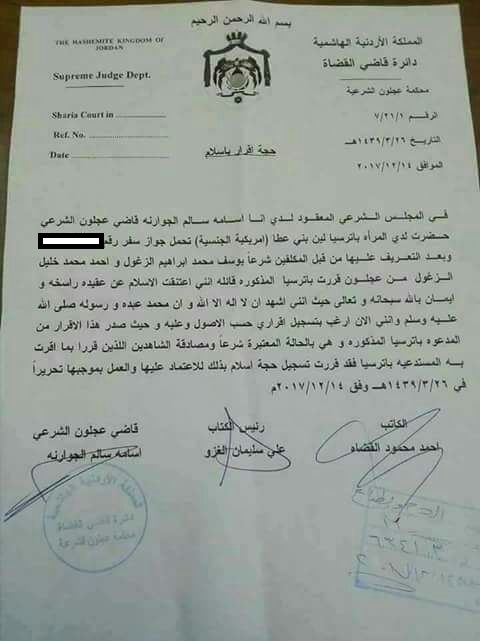 بسم الله الرحمن الرحيم
THE HASHEMITE KINGDOM OF
JORDAN
Supreme Judge Dept.
Sharia Court in ........................
Ref. No. ........................
Date ........................
المملكة الأردنية الهاشمية
دائرة قاضي القضاة
محكمة عجلون الشرعية
الرقم ٧/٢١/١
التاريخ ١٤٣٩/٣/٢٦هـ
الموافق ٢٠١٧/١٢/١٤
حجة اقرار باسلام
في المجلس الشرعي المعقود لدي انا اسامه سالم الجوارنه قاضي عجلون الشرعي
حضرت لدي المرأه باترسيا لين بني عطا (امريكية الجنسية) تحمل جواز سفر رقم
وبعد التعريف عليها من قبل المكلفين شرعاً يوسف محمد ابراهيم الزغول و احمد محمد خليل
الزغول من عجلون قررت باترسيا المذكوره قائله انني اعتنقت الاسلام عن عقيده راسخه و
ايمان بالله سبحانه و تعالى حيث انني اشهد ان لا اله الا الله و ان محمد عبده و رسوله صلى الله
عليه وسلم وانني الان ارغب بتسجيل اقراري حسب الاصول وعليه و حيث صدر هذا الاقرار من
المدعوه باترسيا المذكوره و هي بالحالة المعتبرة شرعاً ومصادقة الشاهدين اللذين قررا بما اقرت
به المستدعيه باترسيا فقد قررت تسجيل حجة اسلام بذلك للاعتماد عليها والعمل بموجبها تحريراً
في ١٤٣٩/٣/٢٦هـ وفق ٢٠١٧/١٢/١٤م
الكاتب
احمد محمود القضاه
رئيس الكتاب
علي سليمان الغزو
قاضي عجلون الشرعي
اسامه سالم الجوارنه
المملكة الأردنية الهاشمية
دائرة قاضي القضاة
محكمة عجلون الشرعية